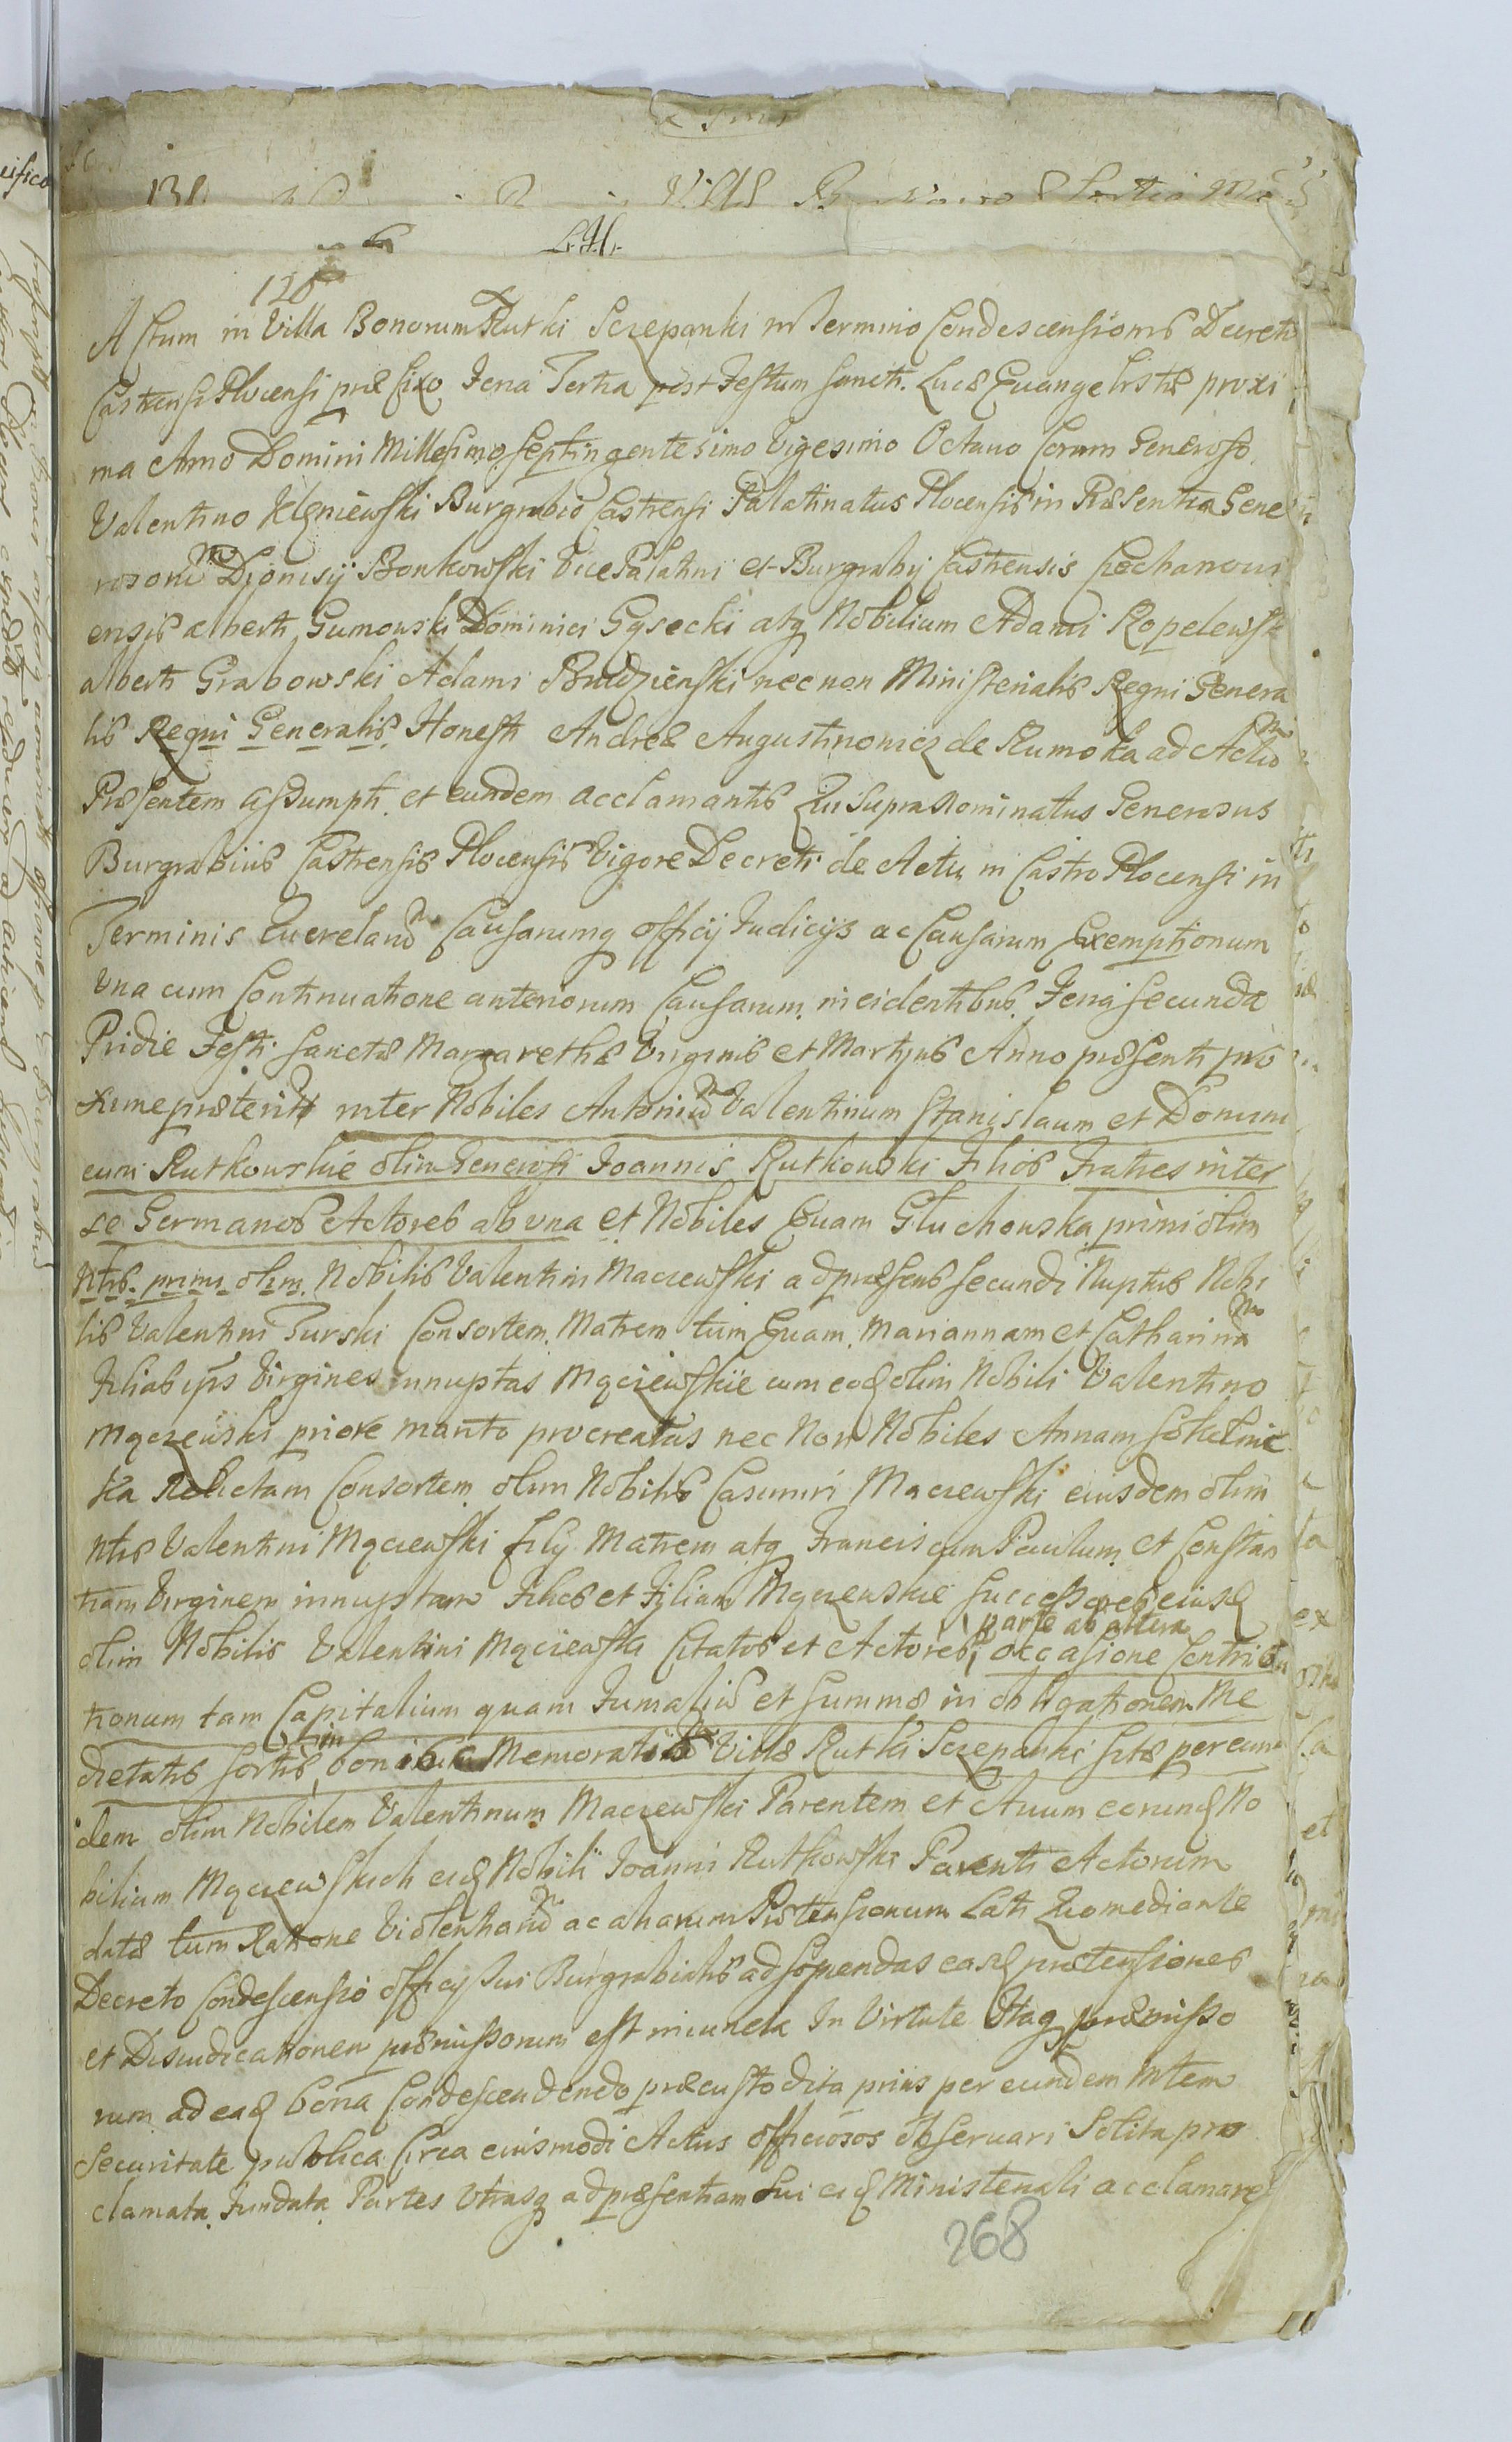 L. H.
128
Actum in Villa Bonorum Rutki Sczepanki in Termino Condescensionis Decreto
Castrensi Plocensi præfixo Feria Tertia post Festum Sancti Lucæ Euangelistæ proxi
ma Anno Domini Millesimo Septingentesimo Vigesimo Octauo Coram Generoso
Valentino Klęniewski Burgrabio Castrensi Palatinatus Plocensis in Præsentia Gene
rosorum Dionisij Bonkowski Vice Palatini et Burgrabij Castrensis Ciechanoui
ensis alberti Gumowski Dominici Gąsecki atq Nobilium Adami Ropelewski
alberti Grabowski Adami Rudzienski nec non Ministerialis Regni Genera
lis Regni Generalis Honesti Andreæ Augustinowicz de Rumoka ad Actum
Præsentem assumpti et eundem acclamantis Qui Supra Nominatus Generosus
Burgrabius Castrensis Plocensis Vigore Decreti de Actu in Castro Plocensi in
Terminis Querelarum Causarumq officij Iudicijs ac Causarum Exemptionum
Vna cum Continuatione anteriorum Causarum incidentibus Feria Secunda
Pridie Festi Sanctæ Margarethæ Virginis et Martyris Anno præsenti pro
xime præterito inter Nobiles Antonium Valentinum Stanislaum et Domini
cum Rutkowskie olim Generosi Ioannis Rutkowski Filios Fratres inter
se Germanos Actores ab vna et Nobiles Euam Gluchowska primi olim
Ntis primi olim Nobilis Valentini Maczewski ad præsens secundi Nuptus Nobi
lis Valentini Turski Consortem Matrem tum Euam Mariannam et Catharinam
Filias ipsius Virgines innuptas Mączewskie cum eodem olim Nobili Valentino
Mączewski priore marito procreatas nec Non Nobiles Annam Sokolnic
ka Relictam Consortem olim Nobilis Casimiri Maczewski eiusdem olim
Ntis Valentini Mączewski filij Matrem atq Franciscum Paulum et Constan
tiam Virginem innuptam Filios et Filiam Mączewskie Successores eiusd
parte ab altera
olim Nobilis Valentini Mączewski Citatos et Actores, occasione Contribu
tionum tam Capitalium quam Fumalium et Summæ in obligationem Me
dietatis Sortis in bonis Memoratæ Villæ Rutki Sczepanki sitæ per eun
dem olim Nobilem Valentinum Maczewski Parentem et Auum eorund No
bilium Mączewskich eid Nobili Ioanni Rutkowski Parenti Actorum
datæ tum Ratione Violentiarum ac aliarum Prætensionum Lati Quo mediante
Decreto Condescensio officij sui Burgrabialis ad sopiendas easd prætensiones
et Disiudicationem præmissorum est iniuncta In Virtute Itaq præmisso
rum ad ead bona Condescendendo præcustodita prius per eundem Mtem
Securitate publica Circa eiusmodi Actus officiosos obseruari Solita pro
clamata Fundata Partes Vtrasq ad præsentiam sui eid Ministeriali acclamare
268